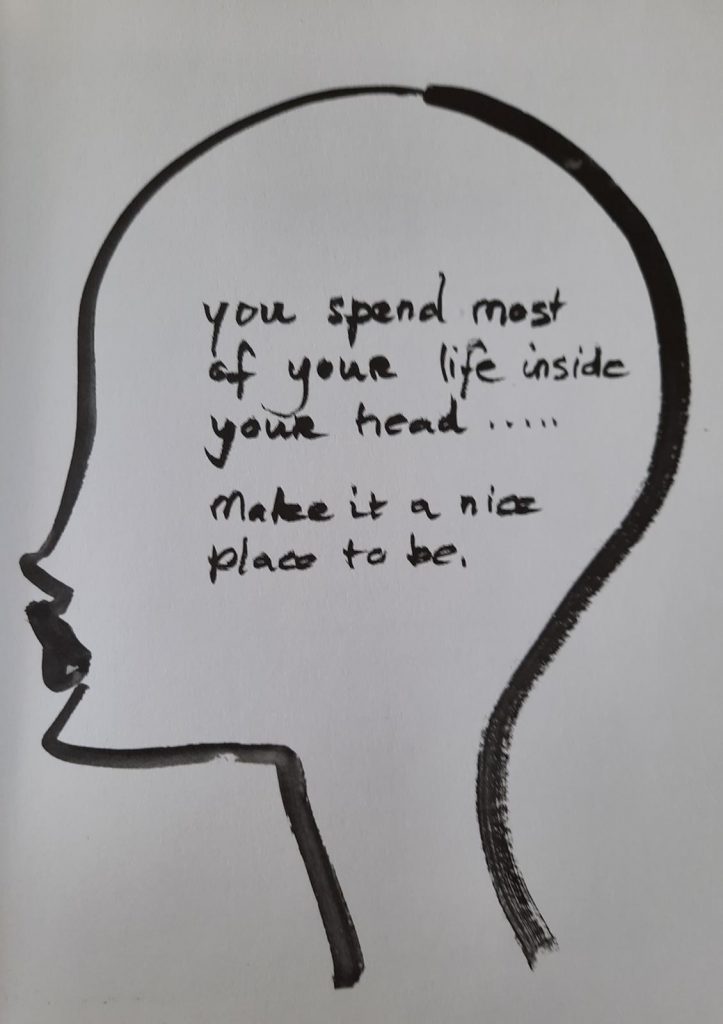 you spend most
of your life inside
your head .....
Make it a nice
place to be.